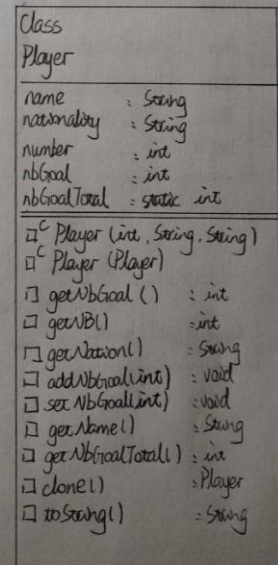 Class
Player
name : String
nationality : String
number : int
nbGoal : int
nbGoalTotal : static int
□ᶜ Player (int, String, String)
□ᶜ Player (Player)
□ getNbGoal () : int
□ getNB() : int
□ getNation() : String
□ addNbGoal(int) : void
□ set NbGoal(int) : void
□ getName() : String
□ getNbGoalTotal() : int
□ clone() : Player
□ toString() : String